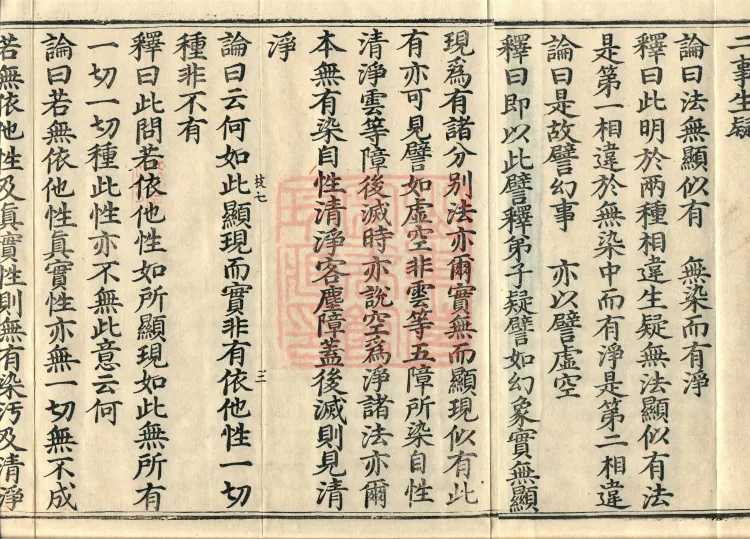 二事生疑
論曰法無顯似有　無染而有淨
釋曰此明於兩種相違生疑無法顯似有法
是第一相違於無染中而有淨是第二相違
論曰是故譬幻事　亦以譬虛空
釋曰即以此譬釋弟子疑譬如幻象實無顯
現爲有諸分別法亦爾實無而顯現似有此
有亦可見譬如虛空非雲等五障所染自性
清淨雲等障後滅時亦說空爲淨諸法亦爾
本無有染自性清淨客塵障蓋後滅則見清
淨
技七　三
論曰云何如此顯現而實非有依他性一切
種非不有
釋曰此問若依他性如所顯現如此無所有
一切一切種此性亦不無此意云何
論曰若無依他性眞實性亦無一切無不成
若無依他性及眞實性則無有染污及清淨